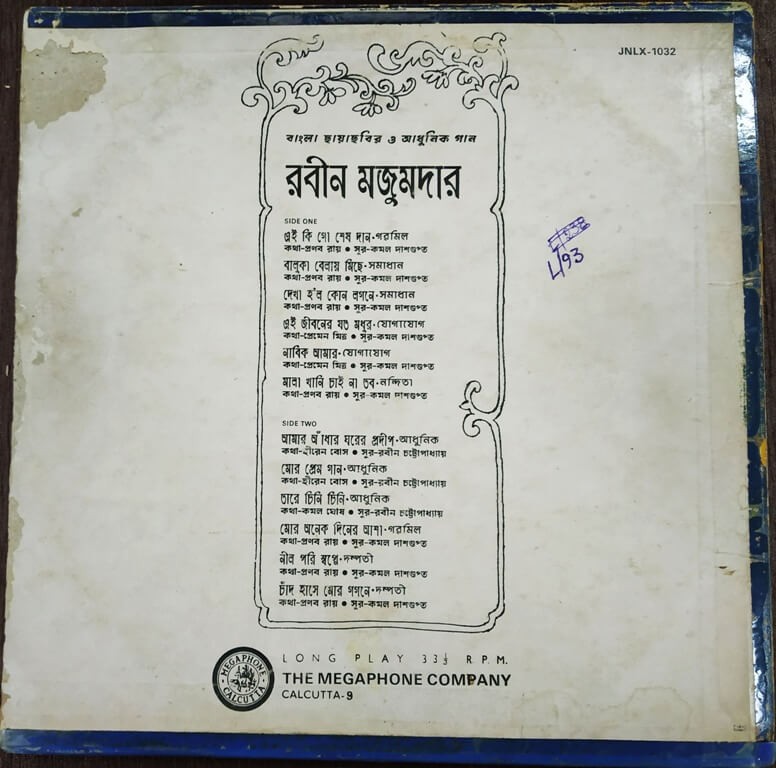 JNLX-1032
বাংলা ছায়াছবির ও আধুনিক গান
রবীন মজুমদার
SIDE ONE
এই কি গো শেষ দান-গরমিল
কথা-প্রণব রায় ● সুর-কমল দাশগুপ্ত
বালুকা বেলায় মিছে-সমাধান
কথা-প্রণব রায় ● সুর-কমল দাশগুপ্ত
দেখা হ'ল কোন লগনে-সমাধান
কথা-প্রণব রায় ● সুর-কমল দাশগুপ্ত
এই জীবনের যত মধুর-যোগাযোগ
কথা-প্রেমেন মিত্র ● সুর-কমল দাশগুপ্ত
নাবিক আমার-যোগাযোগ
কথা-প্রেমেন মিত্র ● সুর-কমল দাশগুপ্ত
মালা খানি চাই না তব-নন্দিতা
কথা-প্রণব রায় ● সুর-কমল দাশগুপ্ত
SIDE TWO
আমার আঁধার ঘরের প্রদীপ-আধুনিক
কথা-হীরেন বোস ● সুর-রবীন চট্টোপাধ্যায়
মোর প্রেম গান-আধুনিক
কথা-হীরেন বোস ● সুর-রবীন চট্টোপাধ্যায়
তারে চিনি চিনি-আধুনিক
কথা-কমল ঘোষ ● সুর-রবীন চট্টোপাধ্যায়
মোর অনেক দিনের আশা-গরমিল
কথা-প্রণব রায় ● সুর-কমল দাশগুপ্ত
নীল পরি স্বপ্নে-দম্পতী
কথা-প্রণব রায় ● সুর-কমল দাশগুপ্ত
চাঁদ হাসে মোর গগনে-দম্পতী
কথা-প্রণব রায় ● সুর-কমল দাশগুপ্ত
MEGAPHONE
CALCUTTA
LONG PLAY 33⅓ R.P.M.
THE MEGAPHONE COMPANY
CALCUTTA-9